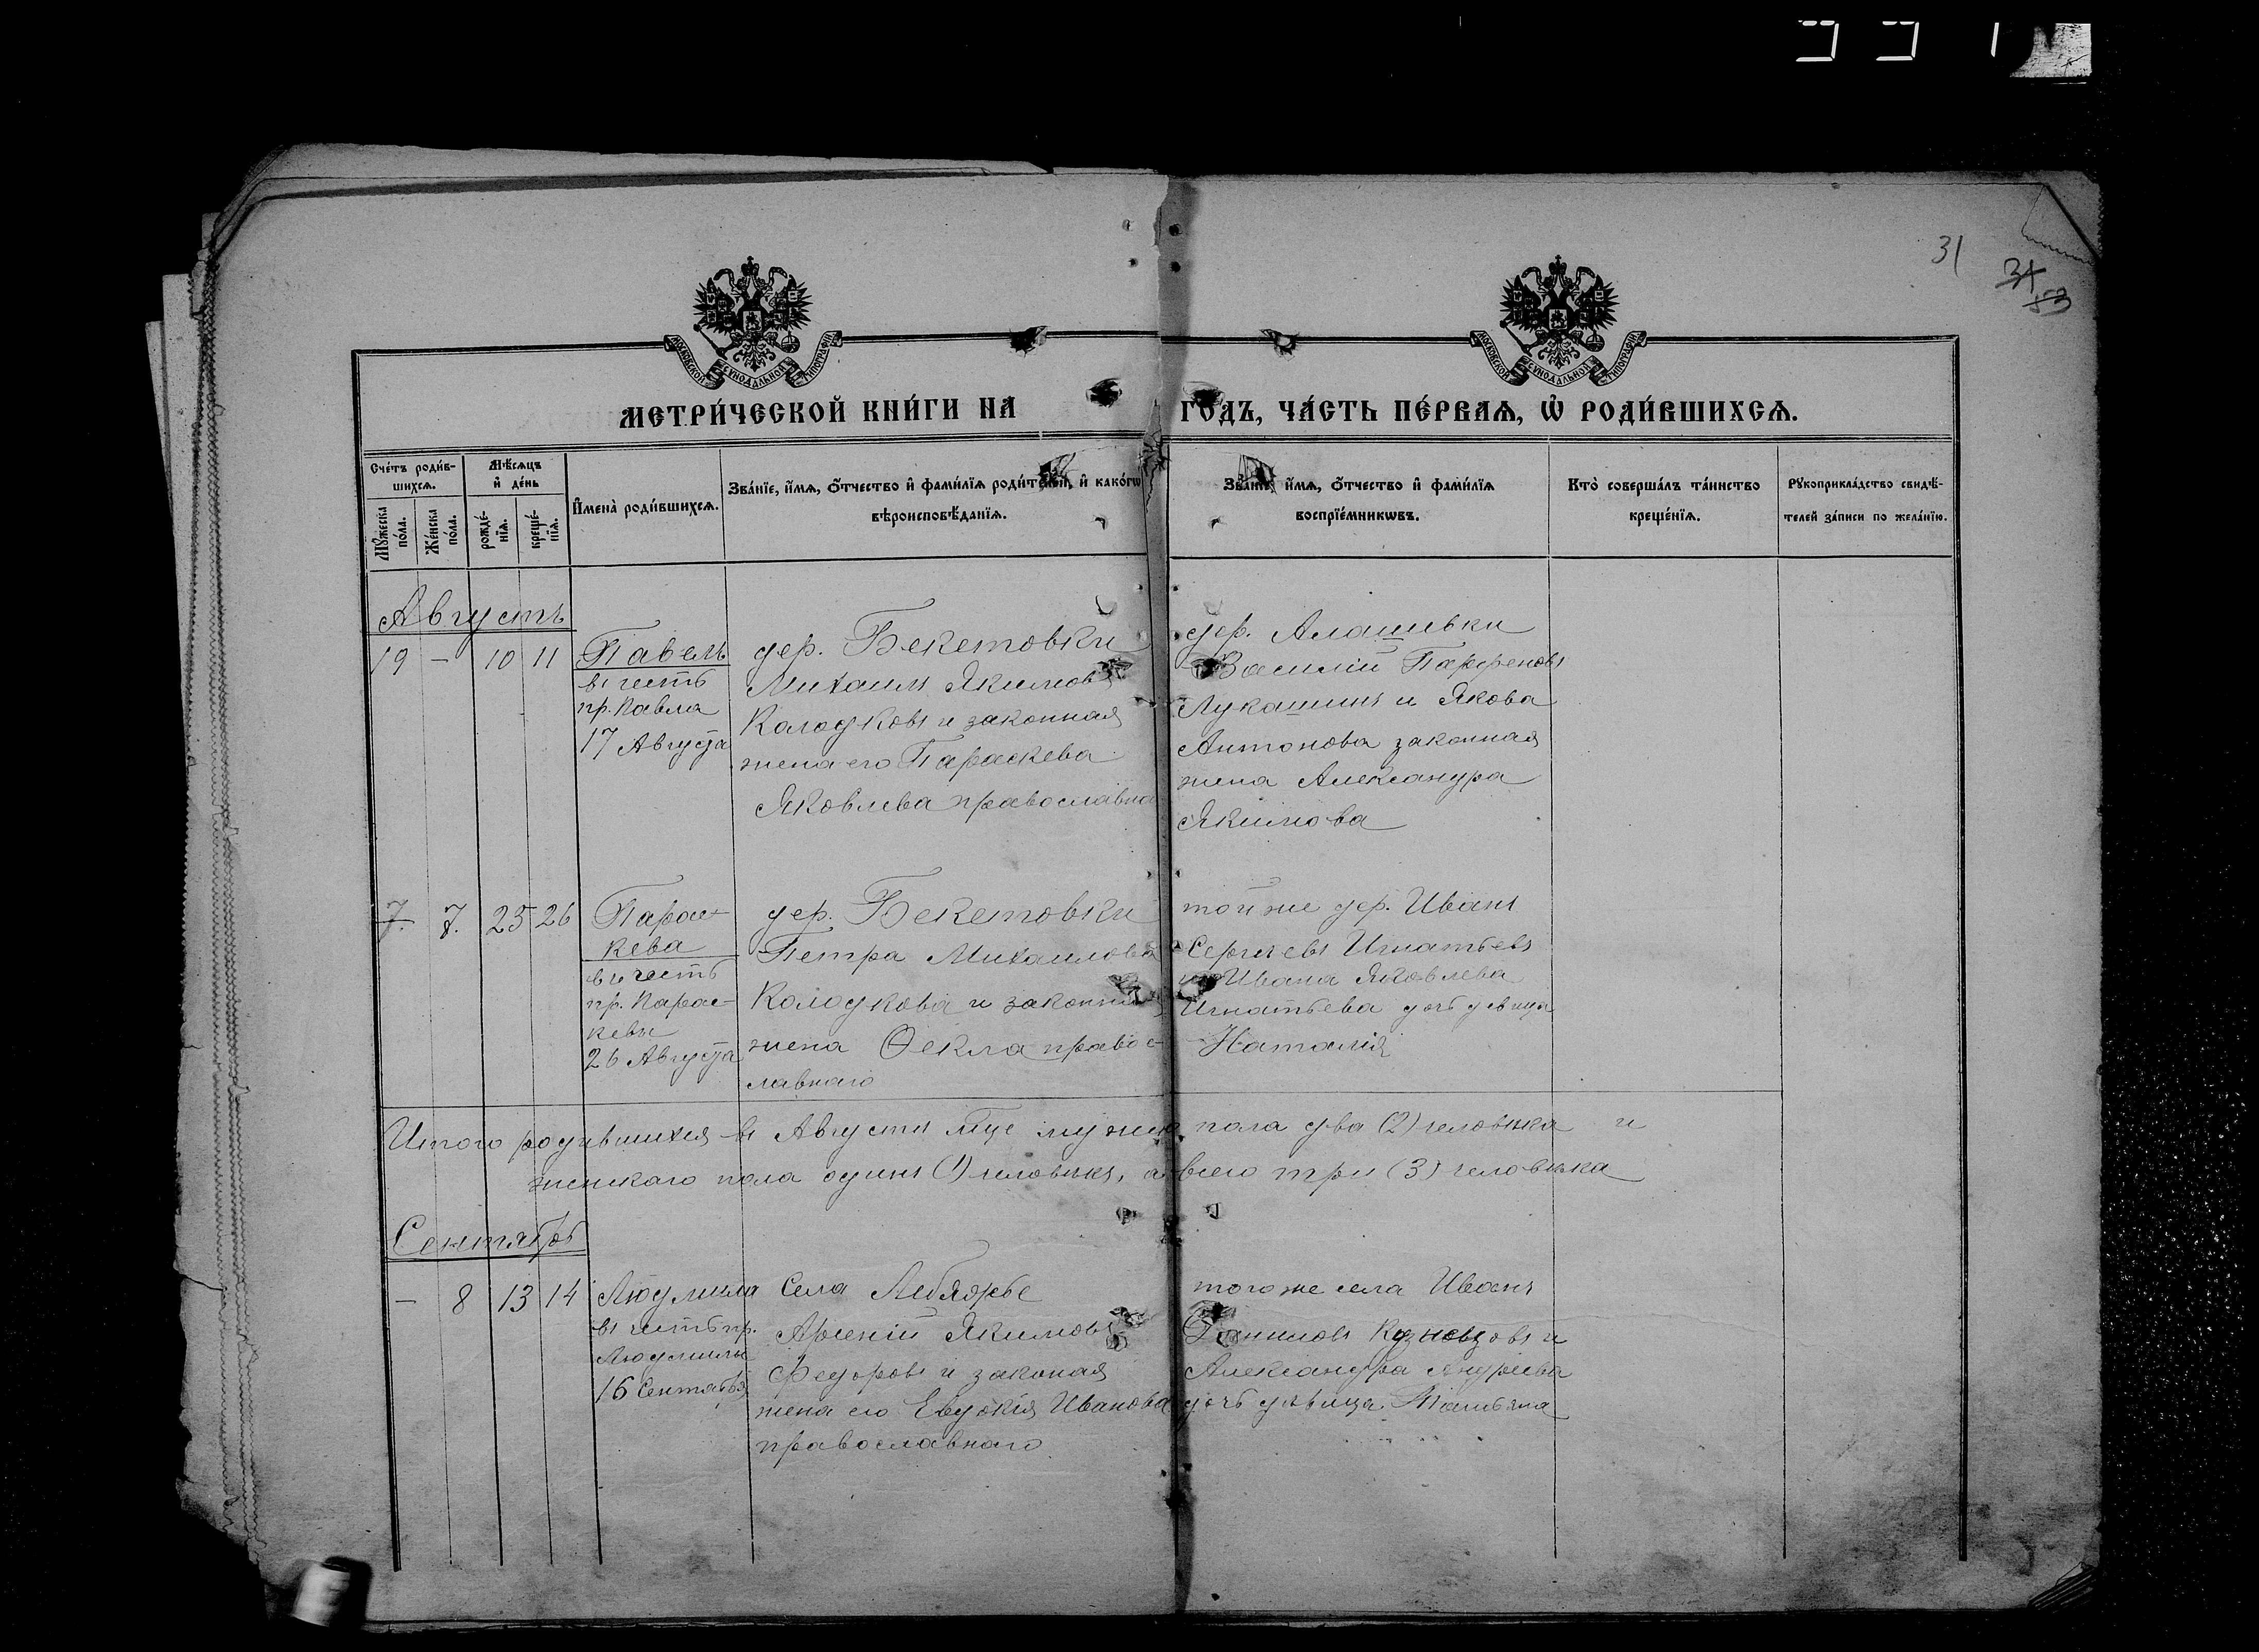 31
34
53
МОСКОВСКОЙ СѴНОДАЛЬНОЙ ТИПОГРАФІИ
МОСКОВСКОЙ СѴНОДАЛЬНОЙ ТИПОГРАФІИ
МЕТРИ́ЧЕСКОЙ КНИ́ГИ НА ГОДЪ, ЧА́СТЬ ПЕ́РВАѦ, Ѡ҆ РОДИ́ВШИХСѦ.
Сче́тъ роди́в-
шихсѧ.
Мѣ́сѧцъ
и҆ де́нь
Мꙋ́жеска
по́ла.
Же́нска
по́ла.
рожде́-
нїѧ.
креще́-
нїѧ.
И҆мена̀ роди́вшихсѧ.
Зва́нїе, и҆́мѧ, ѻ҆́тчество и҆ фами́лїѧ роди́телей, и҆ како́гѡ
вѣроисповѣ́данїѧ.
Зва́нїе, и҆́мѧ, ѻ҆́тчество и҆ фами́лїѧ
воспрїе́мникѡвъ.
Кто̀ соверша́лъ та́инство
креще́нїѧ.
Рꙋкоприкла́дство свидѣ́-
телей за́писи по жела́нїю.
Августъ
19 – 10 11
Павелъ
въ честь
пр. Павла
17 Августа
дер. Бекетовки
Михаилъ Якимовъ
Колодковъ и законная
жена его Параскева
Яковлева православна
дер. Алашивки
Василій Парфеновъ
Лукашинъ и Якова
Антонова законная
жена Александра
Якимова
7. 7. 25 26
Парас-
кева
въ честь
пр. Парас-
кевы
26 Августа
дер. Бекетовки
Петра Михаилова
Колодкова и законная
жена Ѳекла правос-
лавнаго
той же дер. Иванъ
Сергѣевъ Игнатьевъ
и Ивана Яковлева
Игнатьева дочь девица
Наталія
Итого родившихся въ Августѣ м̃це мужск пола два (2) человѣка и
женскаго пола одинъ (1) человѣкъ, а всего три (3) человѣка
Сентябрь
– 8 13 14
Людмила
въ честь пр.
Людмилы
16 Сентября
Села Лебяжье
Арсеній Якимовъ
Федоровъ и законая
жена его Евдокія Иванова
православнаго
того же села Иванъ
Даниловъ Кузнецовъ и
Александра Андреева
дочь дѣвица Татьяна